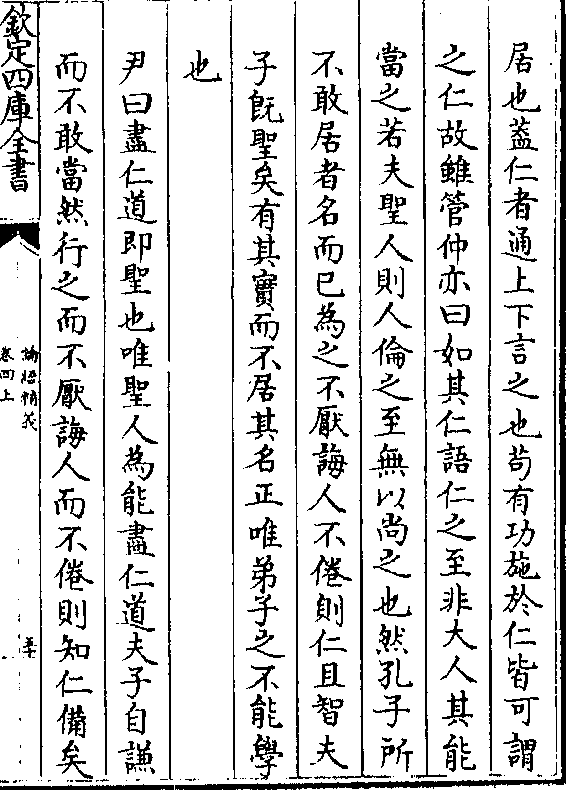 居也葢仁者通上下言之也茍有功施於仁皆可謂
之仁故雖管仲亦曰如其仁語仁之至非大人其能
當之若夫聖人則人倫之至無以尚之也然孔子所
不敢居者名而已為之不厭誨人不倦則仁且智夫
子旣聖矣有其實而不居其名正唯弟子之不能學
也
尹曰盡仁道即聖也唯聖人為能盡仁道夫子自謙
而不敢當然行之而不厭誨人而不倦則知仁備矣
欽定四庫全書
論語精義
卷四上